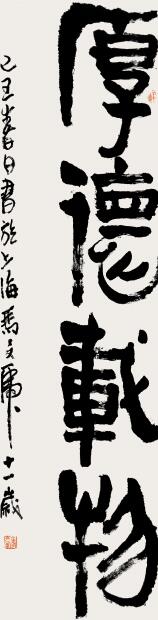 厚德載物
己丑春日書於上海馬文
十一歲